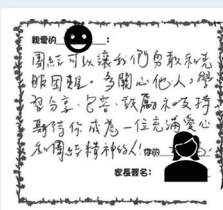 親愛的：
團結可以讓我們勇敢和克
服困難。多關心他人，學
習分享、包容、鼓勵和支持
期待你成為一位充滿愛心
和團結精神的人！
你的
家長簽名：